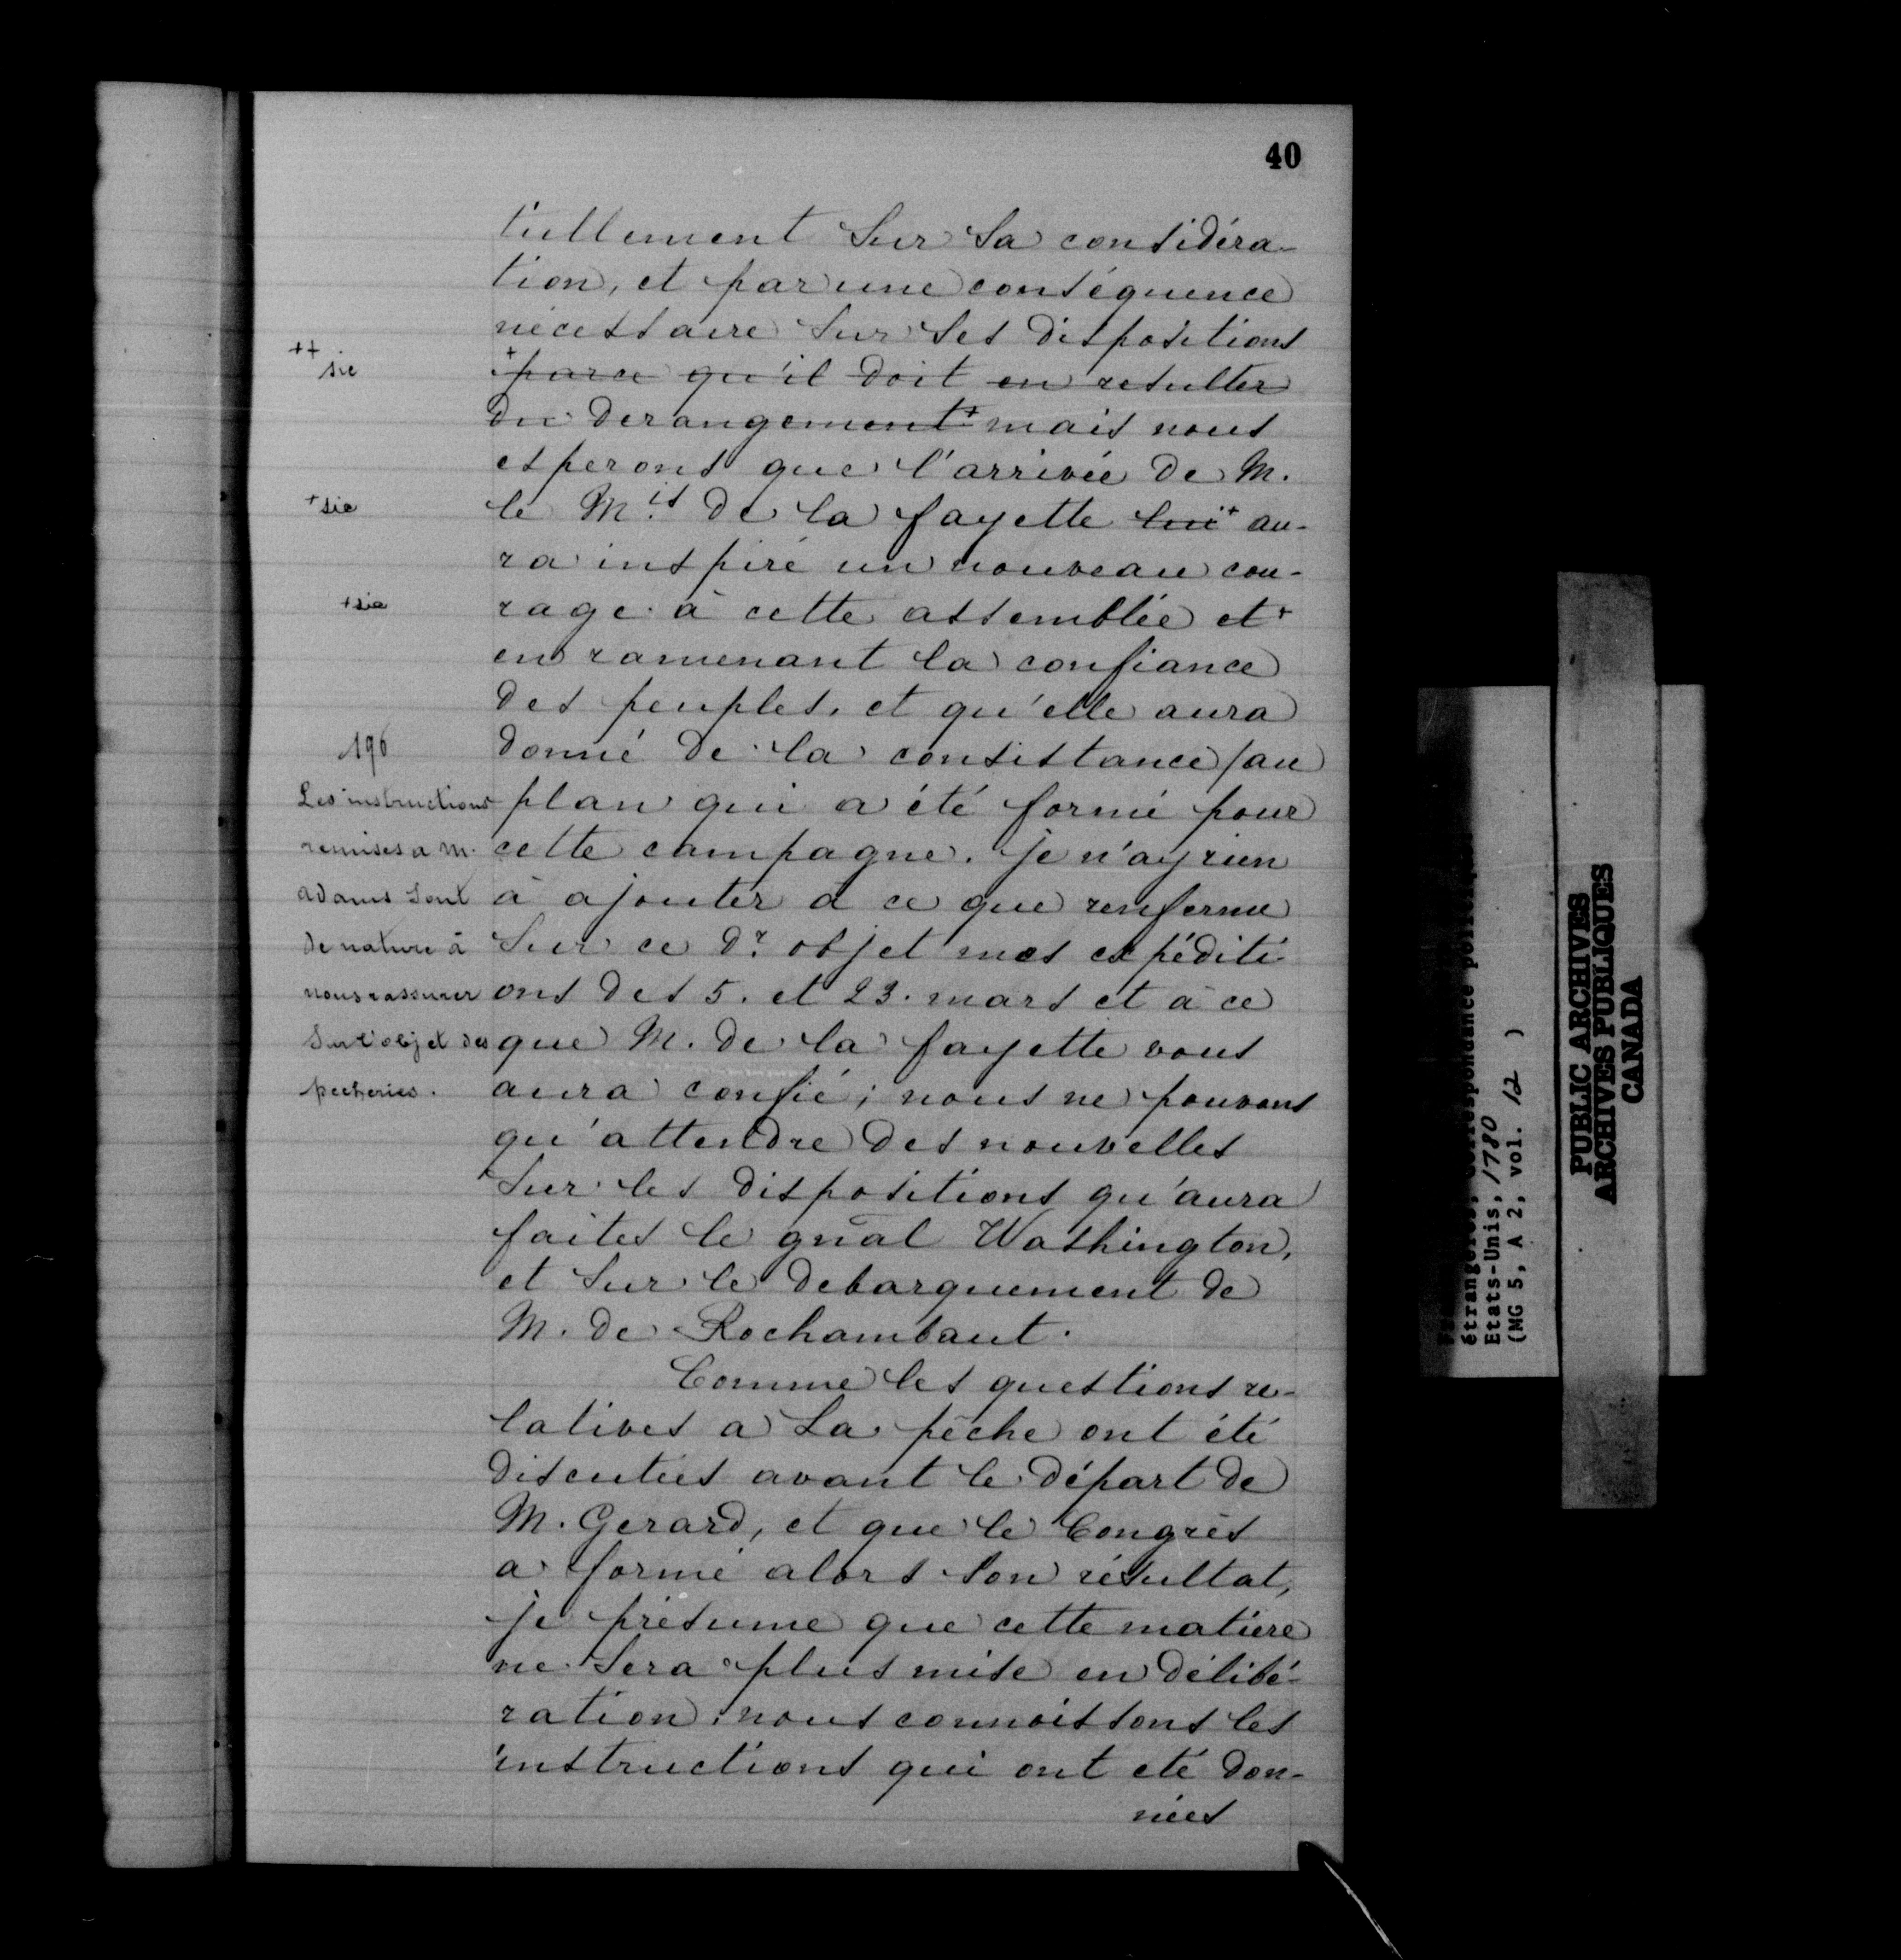 40
tiellement sur sa considéra-
tion, et par une conséquence
nécessaire sur ses dispositions
++ sic
+parce qu'il doit en resulter
du derangement+ mais nous
esperons que l'arrivée de M.
+sic
le M.is de la fayette lui+ au-
ra inspiré un nouveau cou-
+sic
rage à cette assemblée et+
en ramenant la confiance
des peuples, et qu'elle aura
196
donné de la consistance /au
plan qui a été formé pour
cette campagne. je n'ay rien
à ajouter à ce que renferme
sur ce d.r objet mes expéditi-
ons des 5. et 23. mars et à ce
que M. de la fayette vous
aura confié; nous ne pouvons
qu'attendre des nouvelles
sur les dispositions qu'aura
faites le gnāl Washington,
et sur le debarquement de
M. de Rochambaut.
Les instructions
remises a M.
adams sont
de nature à
nous rassurer
sur l'objet des
pecheries.
Comme les questions re-
latives a La pêche ont été
discutées avant le départ de
M. Gerard, et que le Congrès
a formé alors son résultat,
je présume que cette matière
ne sera plus mise en délibé-
ration; nous connoissons les
instructions qui ont eté don-
nées
étrangères, Correspondance politique
Etats-Unis, 1780
(MG 5, A 2, vol. 12 )
PUBLIC ARCHIVES
ARCHIVES PUBLIQUES
CANADA